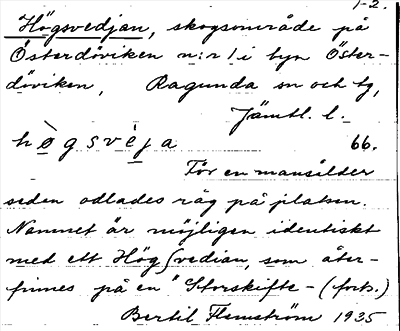 1-2.
Högsvedjan, skogsområde på
Österdöviken n:r 1 i byn Öster-
döviken, Ragunda sn och tg,
Jämtl. l.
hὸgsvὲja 66.
För en mansålder
sedan odlades råg på platsen.
Namnet är möjligen identiskt
med ett Högsvedian, som åter-
finnes på en "Storskifte- (forts.)
Bertil Flemström 1935